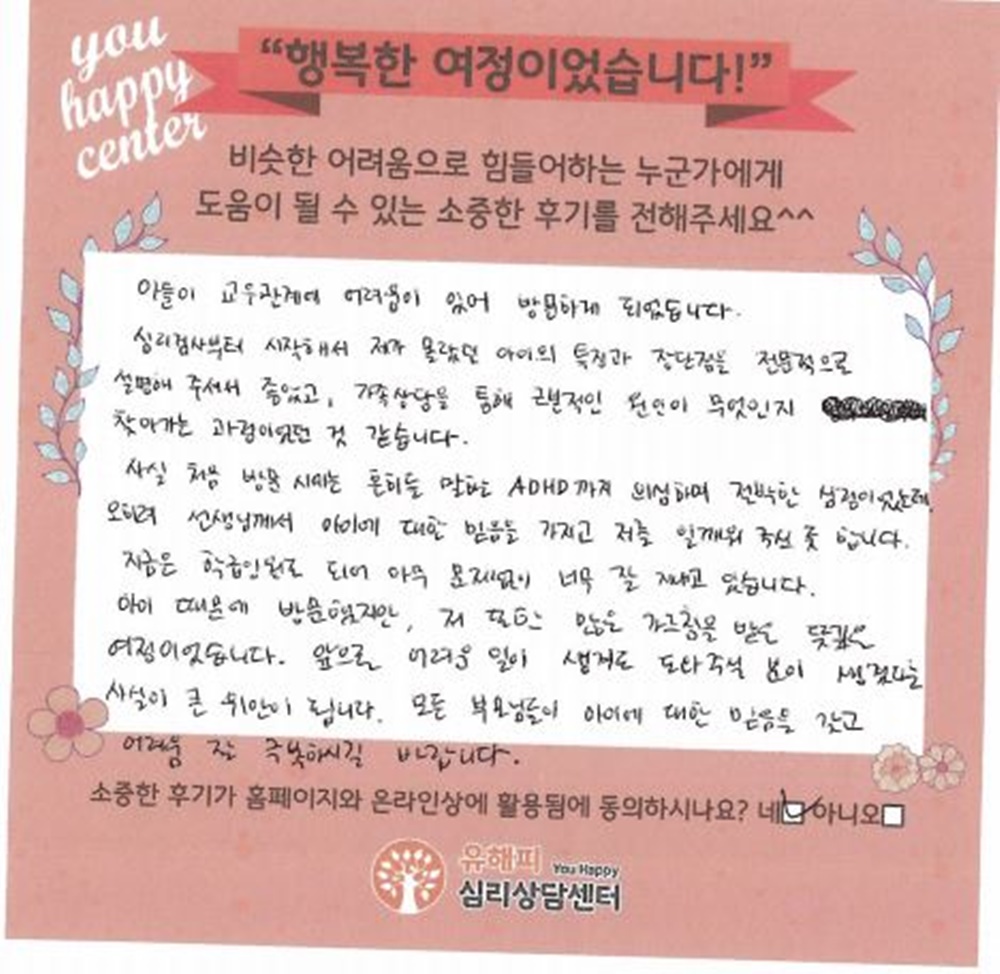 you
happy
center
“행복한 여정이었습니다!”
비슷한 어려움으로 힘들어하는 누군가에게
도움이 될 수 있는 소중한 후기를 전해주세요^^
아들이 교우관계에 어려움이 있어 방문하게 되었습니다.
심리검사부터 시작해서 제가 몰랐던 아이의 특징과 장단점을 전문적으로
설명해 주셔서 좋았고, 가족상담을 통해 근본적인 원인이 무엇인지
찾아가는 과정이었던 것 같습니다.
사실 처음 방문 시에는 흔히들 말하는 ADHD까지 의심하며 절박한 심정이었는데,
오히려 선생님께서 아이에 대한 믿음을 가지고 저를 일깨워 주신 듯 합니다.
지금은 학급임원도 되어 아무 문제없이 너무 잘 지내고 있습니다.
아이 때문에 방문했지만, 저 또한 많은 가르침을 받은 뜻깊은
여정이었습니다. 앞으로 어려운 일이 생겨도 도와주실 분이 생겼다는
사실이 큰 위안이 됩니다. 모든 부모님들이 아이에 대한 믿음을 갖고
어려움 잘 극복하시길 바랍니다.
소중한 후기가 홈페이지와 온라인상에 활용됨에 동의하시나요? 네 아니오
유해피 You Happy
심리상담센터